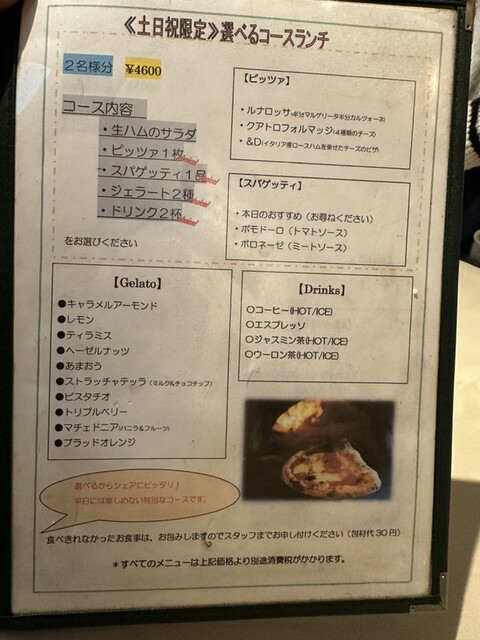 《土日祝限定》選べるコースランチ
2名様分 ¥4600
コース内容
・生ハムのサラダ
・ピッツァ1枚
・スパゲッティ1品
・ジェラート2種
・ドリンク2杯
をお選びください
【ピッツァ】
・ルナロッサ(半分マルゲリータ半分カルツォーネ)
・クアトロフォルマッジ(4種類のチーズ)
・&D(イタリア産ロースハムを乗せたチーズのピザ)
【スパゲッティ】
・本日のおすすめ(お尋ねください)
・ポモドーロ(トマトソース)
・ボロネーゼ(ミートソース)
【Gelato】
●キャラメルアーモンド
●レモン
●ティラミス
●ヘーゼルナッツ
●あまおう
●ストラッチャテッラ(ミルク&チョコチップ)
●ピスタチオ
●トリプルベリー
●マチェドニア(バニラ&フルーツ)
●ブラッドオレンジ
【Drinks】
〇コーヒー(HOT/ICE)
〇エスプレッソ
〇ジャスミン茶(HOT/ICE)
〇ウーロン茶(HOT/ICE)
選べるからシェアにピッタリ!
平日には楽しめない特別なコースです。
食べきれなかったお食事は、お包みしますのでスタッフまでお申し付けください(包材代30円)
*すべてのメニューは上記価格より別途消費税がかかります。